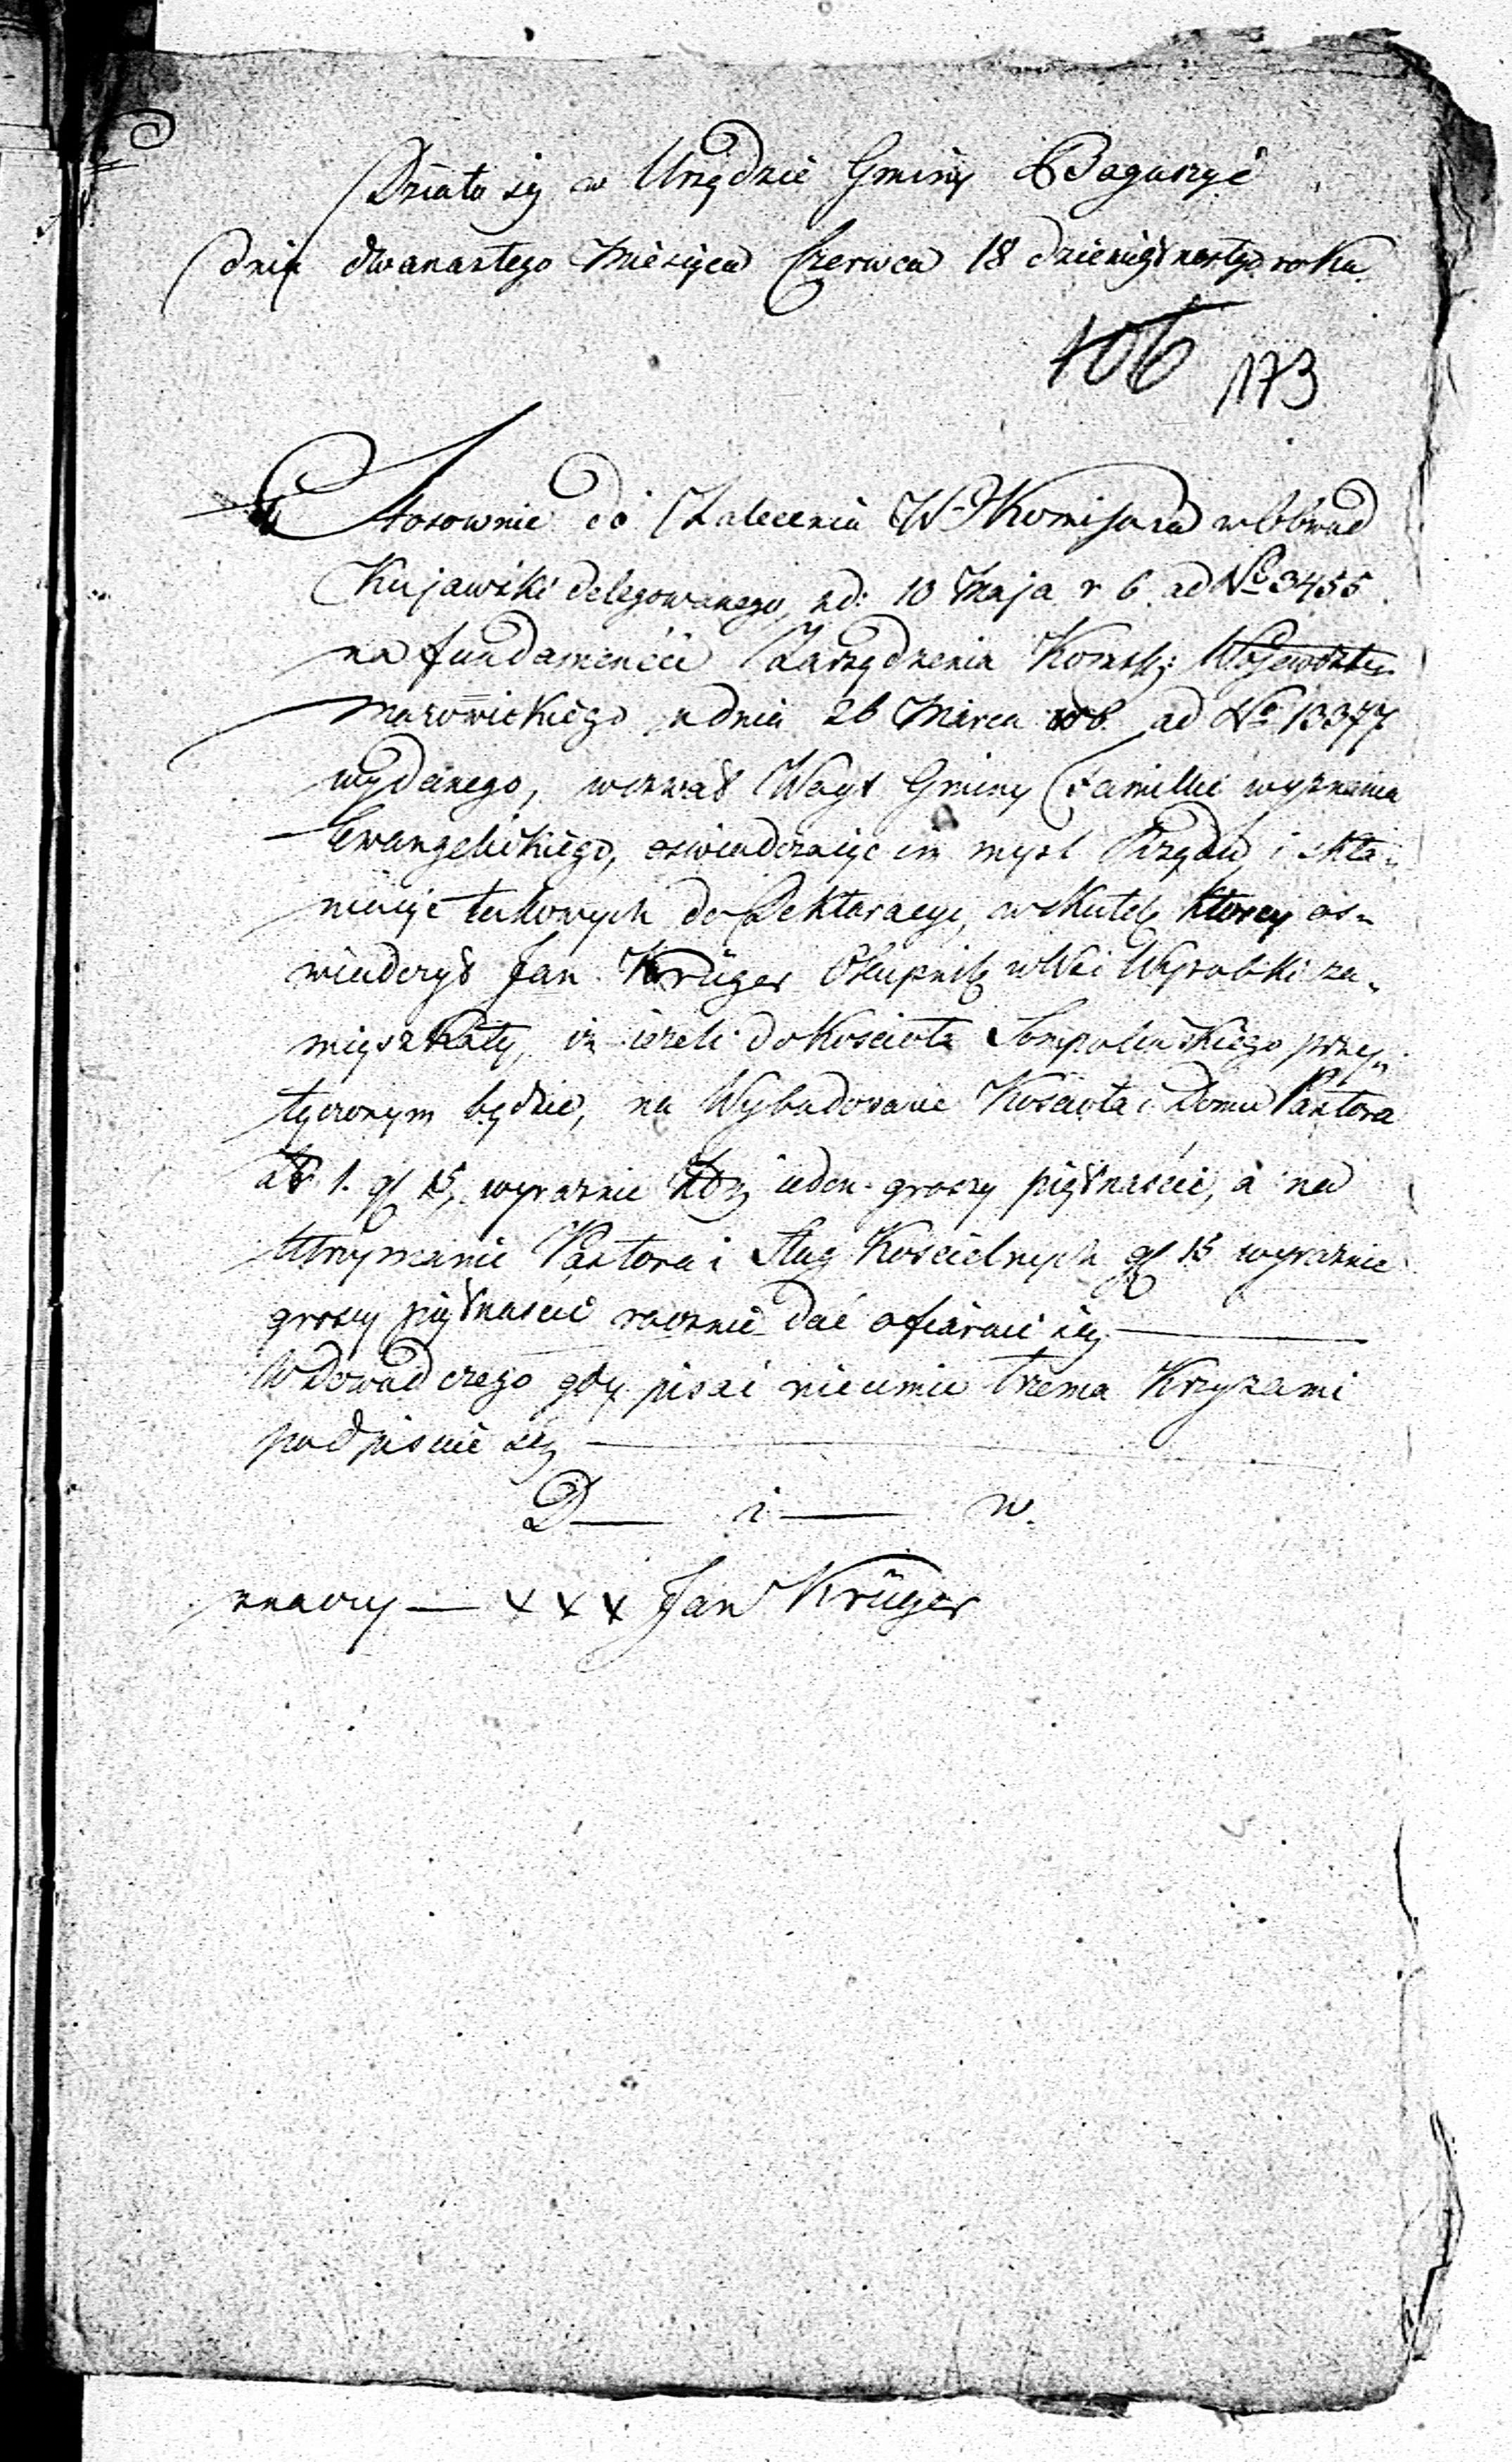 Działo się w Urzędzie Gminy Boguszyc
dnia dwunastego Miesiąca Czerwca 18 dziewiętnastego roku
106 173
Stosownie do Zalecenia W. Komisarza w Obwód
Kujawski delegowanego, z d: 10 Maja r b. ad No 3455
na fundamencie Zarządzenia Komsji Wojewodztwa
Mazowieckiego z dnia 26 Marca r b. ad No 13377
wydanego, wezwał Woyt Gminy Familie wyznania
Ewangelickiego, oswiadczaiąc im mysl Rządu i skła-
niaiąc takowych do Deklaracyi, w skutek ktorey os-
wiadczył Jan Krüger Okupnik w Wsi Wyrobki za-
mięszkały, iż ieżeli do Koscioła Sompolinskiego przy-
łączonym będzie, na Wybudowanie Koscioła i Domu Pastora
zł 1. gl 15, wyraznie Złoty ieden groszy piętnascie, a na
Utrzymanie Pastora i Sług Koscielnych gl 15 wyraznie
groszy piętnascie rocznie dać ofiaruie się
W dowod czego gdy pisać nieumie trzema Krzyzami
podpisuie się
D— i— w.
znaczy — x x x Jan Krüger